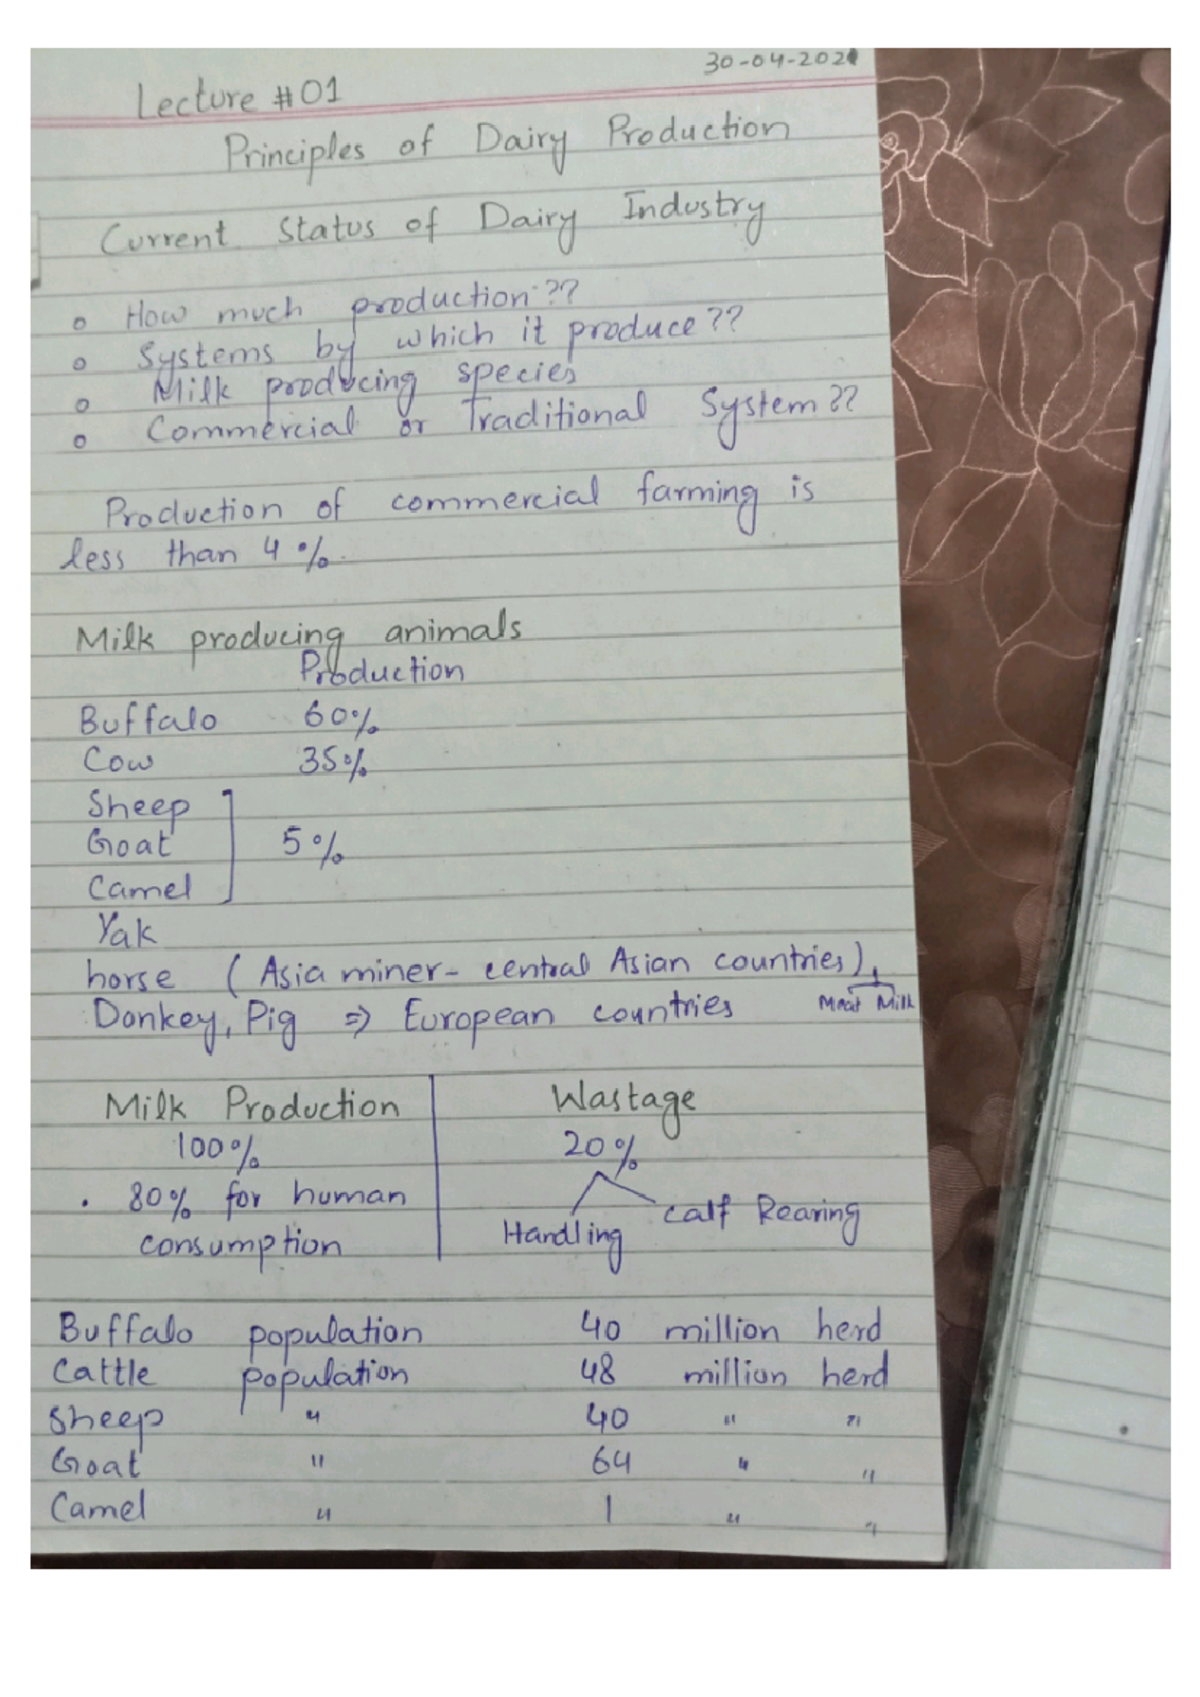 30-04-2021
Lecture #01
Principles of Dairy Production
Current Status of Dairy Industry
o How much production ??
o Systems by which it produce ??
o Milk producing species
o Commercial or Traditional System ??
Production of commercial farming is
less than 4%.
Milk producing animals
Production
Buffalo 60%
Cow 35%
Sheep
Goat 5%
Camel
Yak
horse (Asia miner- central Asian countries)
Meat Milk
Donkey, Pig ⇒ European countries
Milk Production Wastage
100% 20%
. 80% for human Handling calf Rearing
consumption
Buffalo population 40 million herd
Cattle population 48 million herd
Sheep " 40 " "
Goat " 64 " "
Camel " 1 " "